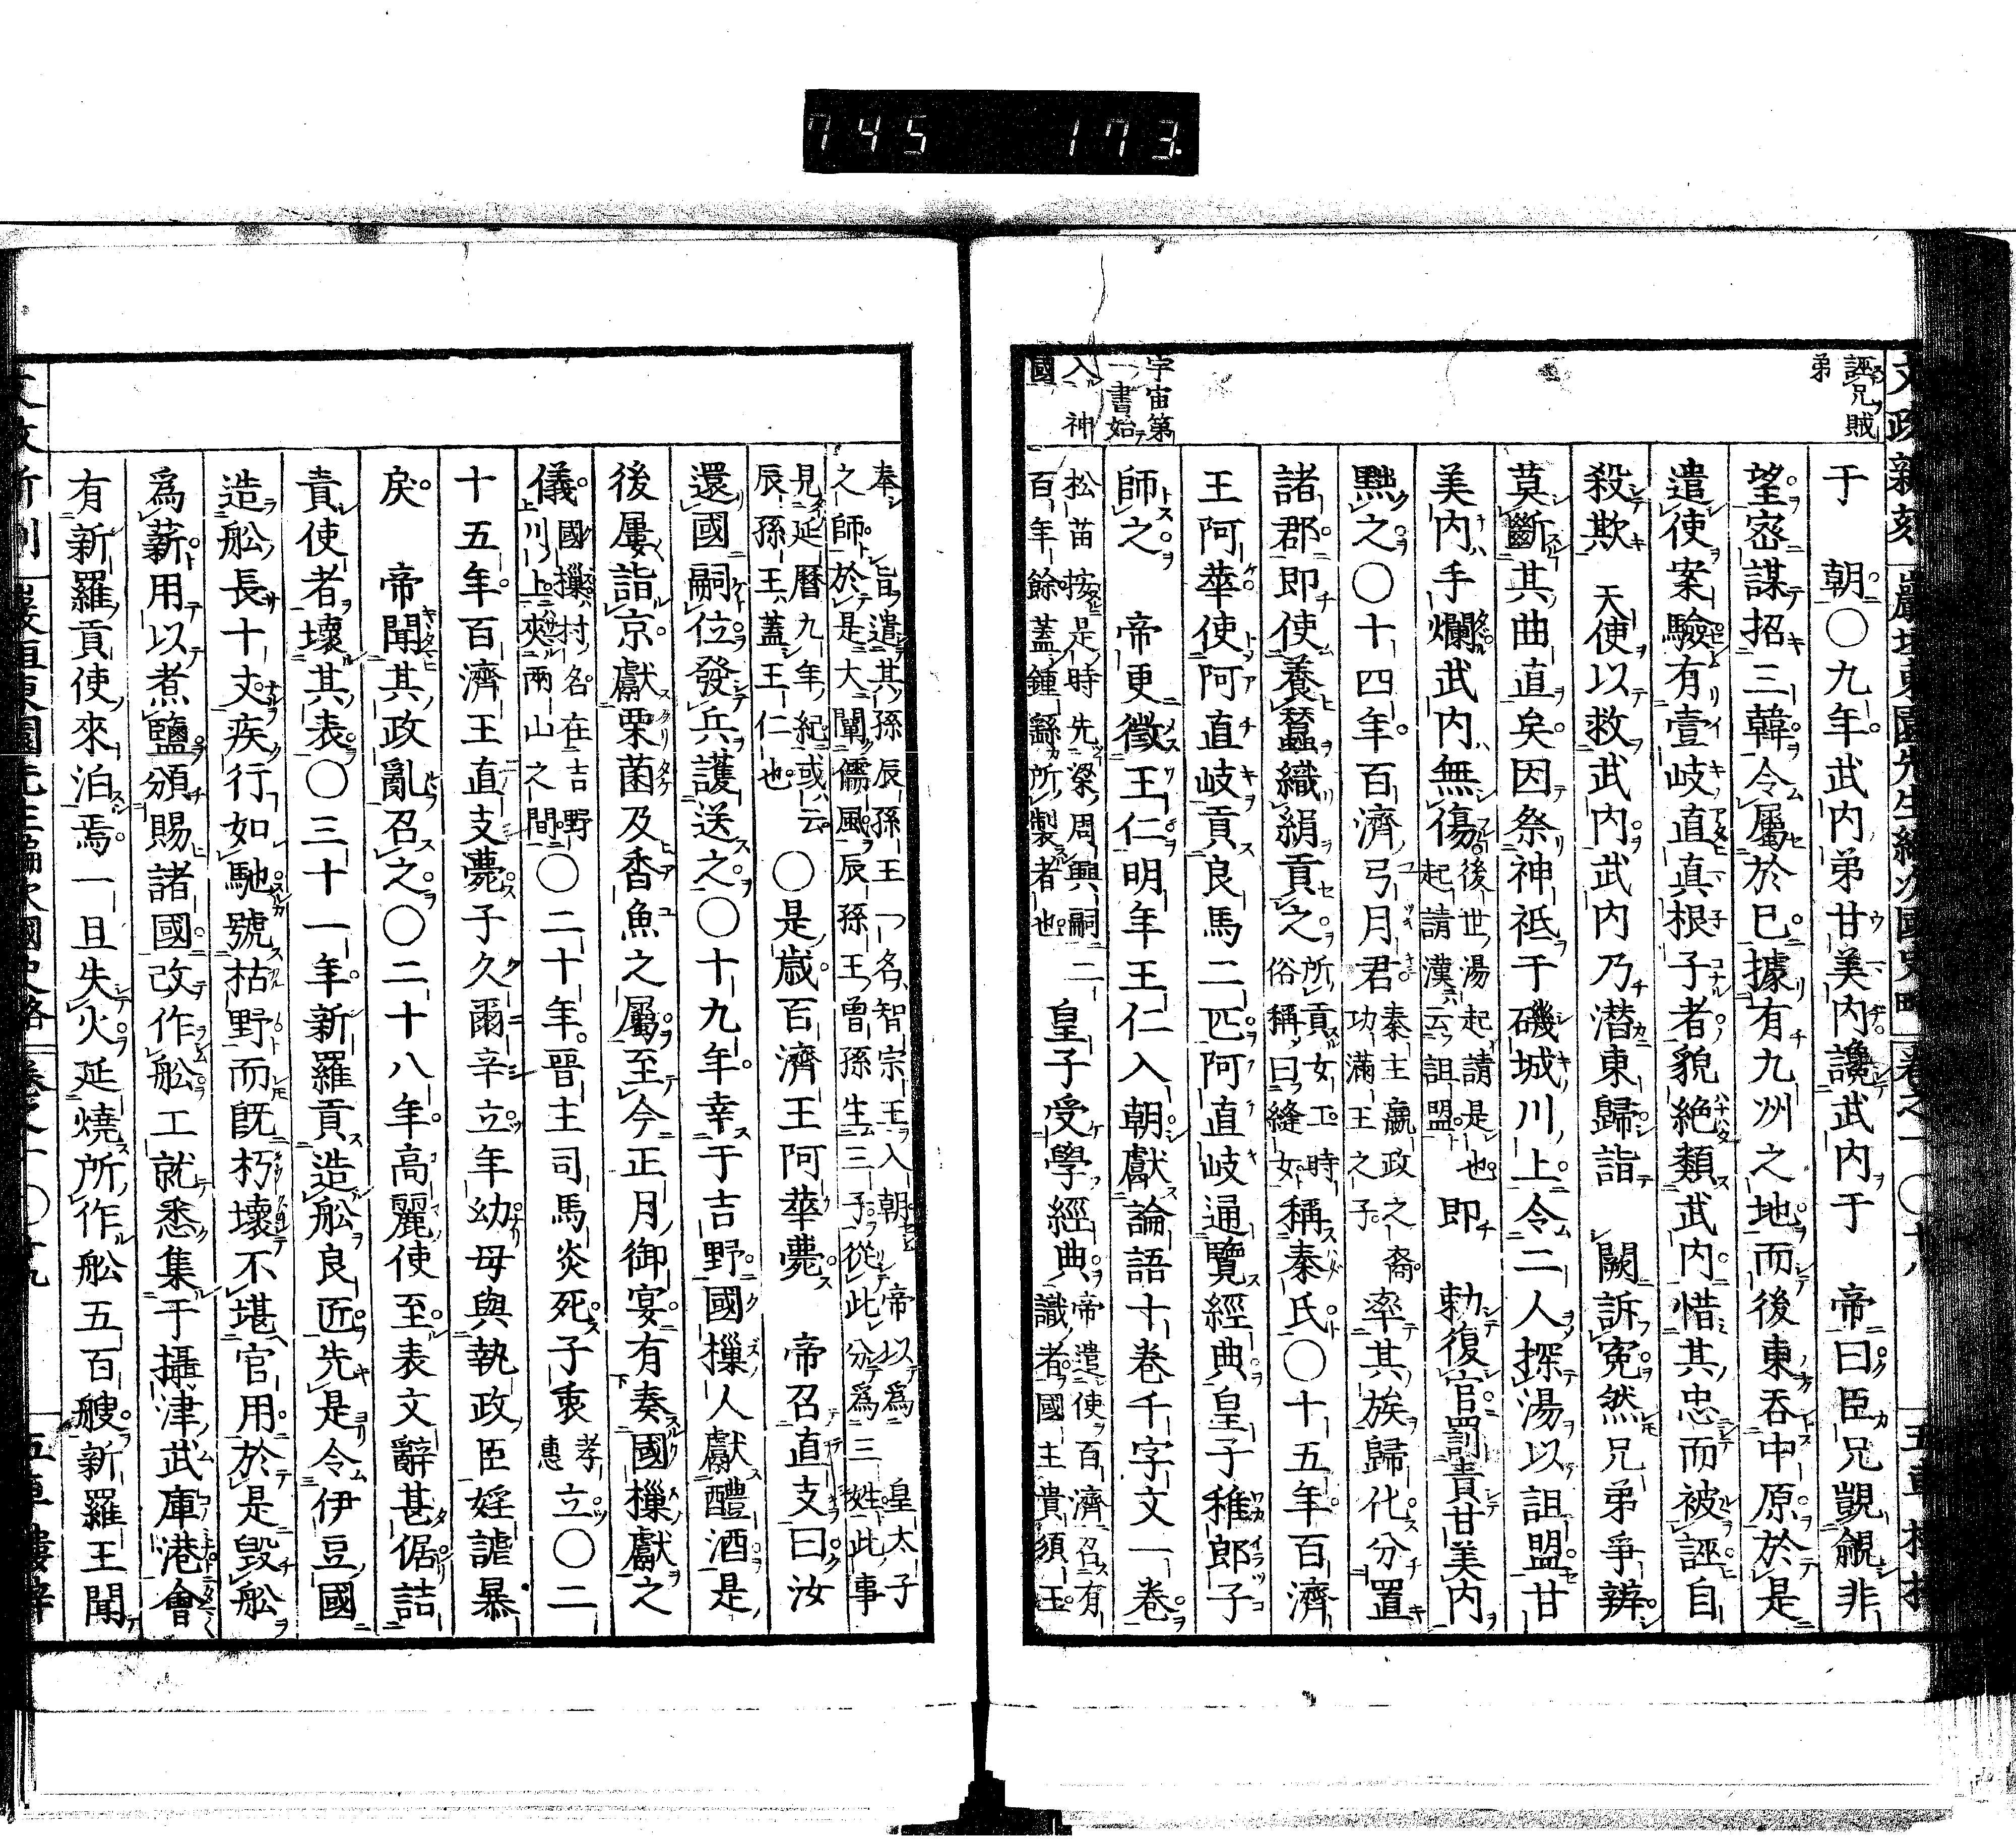 745 173
誣兄賊
弟
于 朝〇九年武内弟甘美内讒武内于 帝曰臣兄覬覦非
望密謀招三韓令屬於已據有九州之地而後東呑中原於是
遣使案驗有壹岐直真根子者貌絶類武内惜其忠而被誣自
殺欺 天使以救武内武内乃潜東歸詣 闕訴寃然兄弟爭辨
莫斷其曲直矣因祭神祇于磯城川上令二人探湯以詛盟甘
美内手爛武内無傷後世湯起請是也
起請漢云詛盟即 勅復官罰責甘美内
黜之〇十四年百濟弓月君秦主嬴政之裔
功滿王之子率其族歸化分置
諸郡即使養蠶織絹貢之所貢女工時
俗稱曰縫女稱秦氏〇十五年百濟
王阿華使阿直岐貢良馬二匹阿直岐通覽經典皇子稚郎子
師之 帝更徵王仁明年王仁入朝獻論語十卷千字文一卷
宇宙第
一書始
入 神
國
松苗按是時先梁周興嗣二
百年餘蓋鍾繇所製者也皇子受學經典帝遣使百濟召有
識者國主貴須王
奉 旨遣其孫辰孫王一名智宗王入朝 帝以爲 皇太子
之師於是大闡儒風辰孫王曾孫生三子從此分爲三姓此事
見延曆九年紀或云
辰孫王蓋王仁也〇是歳百濟王阿華薨 帝召直支曰汝
還國嗣位發兵護送之〇十九年幸于吉野國樔人獻醴酒是
後屢詣京獻栗菌及香魚之屬至今正月御宴有奏國樔獻之
儀國樔村名在吉野
川上夾兩山之間〇二十年晉主司馬炎死子衷孝
惠立〇二
十五年百濟王直支薨子久爾辛立年幼母與執政臣婬謔暴
戻 帝聞其政亂召之〇二十八年高麗使至表文辭甚倨詰
責使者壞其表〇三十一年新羅貢造舩良匠先是令伊豆國
造舩長十丈疾行如馳號枯野而既朽壞不堪官用於是毀舩
爲薪用以煮鹽頒賜諸國改作舩工就悉集于攝津武庫港會
有新羅貢使來泊焉一旦失火延燒所作舩五百艘新羅王聞